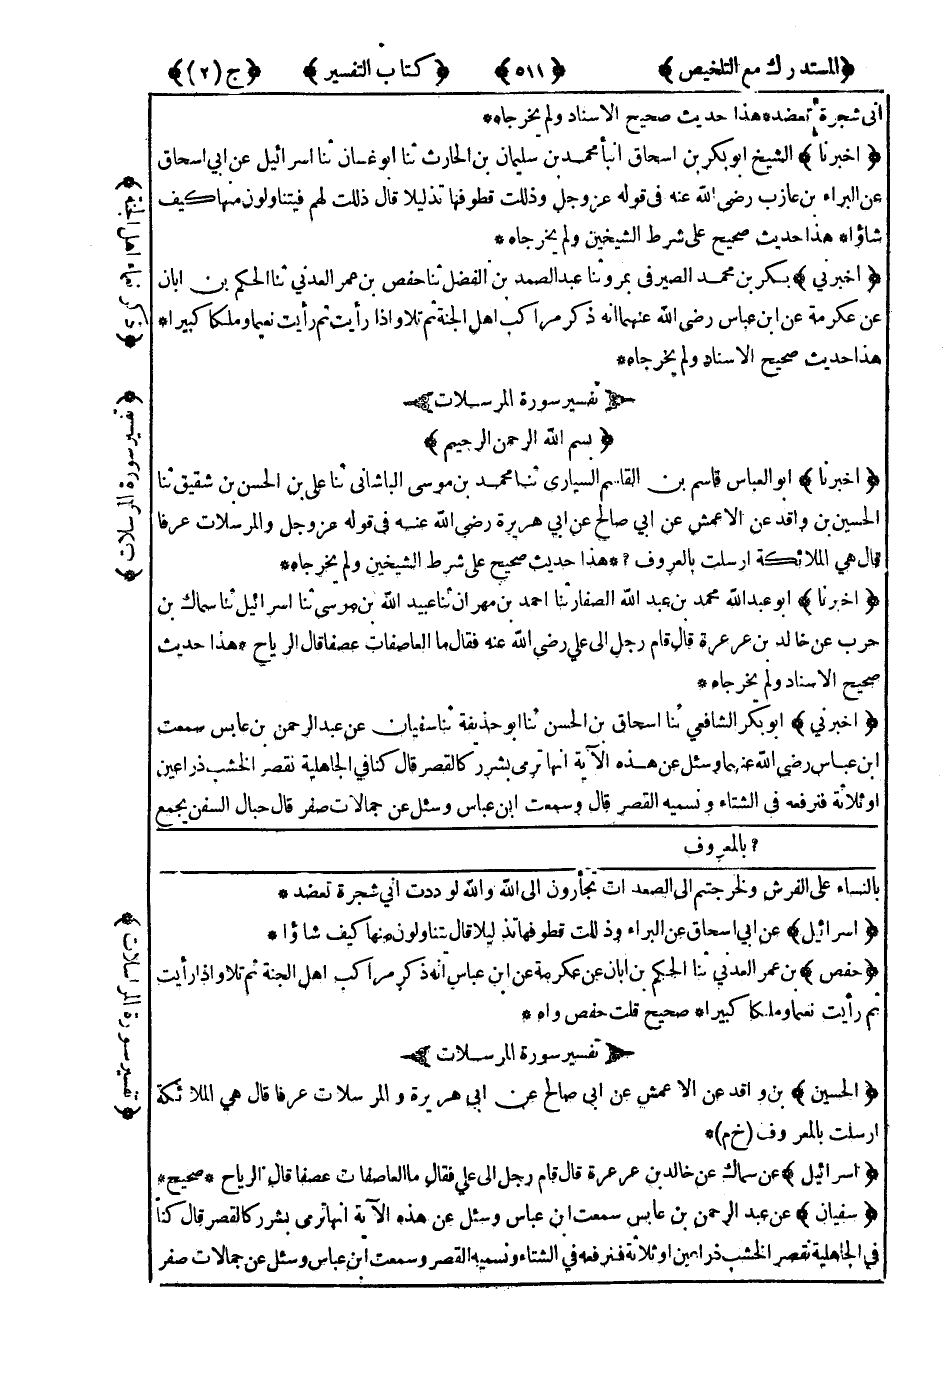 ﴿المستدرك مع التلخيص﴾ ﴿٥١١﴾ ﴿كتاب التفسير﴾ ﴿ج (٢)﴾
انى شجرة تعضد * هذا حديث صحيح الاسناد ولم يخرجاه *
﴿ اخبرنا ﴾ الشيخ ابوبكر بن اسحاق انبأ محمد بن سليمان بن الحارث ثنا ابوغسان ثنا اسرائيل عن ابي اسحاق
عن البراء بن عازب رضى الله عنه فى قوله عزوجل وذللت قطوفها تذليلا قال ذللت لهم فيتناولون منها كيف
شاؤا * هذا حديث صحيح على شرط الشيخين ولم يخرجاه *
﴿ اخبرني ﴾ بكر بن محمد الصيرفى بمرو ثنا عبدالصمد بن الفضل ثنا حفص بن عمر العدني ثنا الحكم بن ابان
عن عكرمة عن ابن عباس رضى الله عنهما انه ذكر مراكب اهل الجنة ثم تلا واذا رأيت ثم رأيت نعيما وملكا كبيرا *
هذا حديث صحيح الاسناد ولم يخرجاه *
﴿ذكر نعماء اهل الجنة﴾
تفسير سورة المرسلات
﴿ بسم الله الرحمن الرحيم ﴾
﴿ اخبرنا ﴾ ابو العباس قاسم بن القاسم السيارى ثنا محمد بن موسى الباشانى ثنا على بن الحسن بن شقيق ثنا
الحسين بن واقد عن الاعمش عن ابي صالح عن ابي هريرة رضى الله عنه فى قوله عزوجل والمرسلات عرفا
قال هي الملائكة ارسلت بالعروف ? * هذا حديث صحيح على شرط الشيخين ولم يخرجاه *
﴿ اخبرنا ﴾ ابو عبدالله محمد بن عبد الله الصفار ثنا احمد بن مهران ثنا عبيد الله بن موسى ثنا اسرائيل ثنا سماك بن
حرب عن خالد بن عرعرة قال قام رجل الى علي رضى الله عنه فقال ما العاصفات عصفا قال الرياح * هذا حديث
صحيح الاسناد ولم يخرجاه *
﴿ اخبرني ﴾ ابوبكر الشافعي ثنا اسحاق بن الحسن ثنا ابو حذيفة ثنا سفيان عن عبدالرحمن بن عابس سمعت
ابن عباس رضى الله عنهما وسئل عن هذه الآية انها ترمى بشرر كالقصر قال كنا في الجاهلية نقصر الخشب ذراعين
او ثلاثة فنرفعه فى الشتاء ونسميه القصر قال وسمعت ابن عباس وسئل عن جمالات صفر قال حبال السفن يجمع
﴿تفسير سورة المرسلات﴾
? بالمعروف
بالنساء على الفرش ولخرجتم الى الصعدات تجأرون الى الله والله لوددت انى شجرة تعضد *
﴿ اسرائيل﴾ عن ابي اسحاق عن البراء وذللت قطوفها تذليلا قال تتناولون منها كيف شاؤا *
﴿ حفص ﴾ بن عمر العدني ثنا الحكم بن ابان عن عكرمة عن ابن عباس انه ذكر مراكب اهل الجنة ثم تلا واذا رأيت
ثم رأيت نعيما وملكا كبيرا * صحيح قلت حفص واه *
تفسير سورة المرسلات
﴿ الحسين ﴾ بن واقد عن الاعمش عن ابى صالح عن ابى هريرة والمرسلات عرفا قال هي الملائكة
ارسلت بالمعروف (خ م) *
﴿ اسرائيل ﴾ عن سماك عن خالد بن عرعرة قال قام رجل الى علي فقال ما العاصفات عصفا قال الرياح * صحيح *
﴿ سفيان ﴾ عن عبد الرحمن بن عابس سمعت ابن عباس وسئل عن هذه الآية انها ترمى بشرر كالقصر قال كنا
في الجاهلية نقصر الخشب ذراعين او ثلاثة فنرفعه في الشتاء ونسميه القصر وسمعت ابن عباس وسئل عن جمالات صفر
﴿تفسير سورة المراسلات﴾